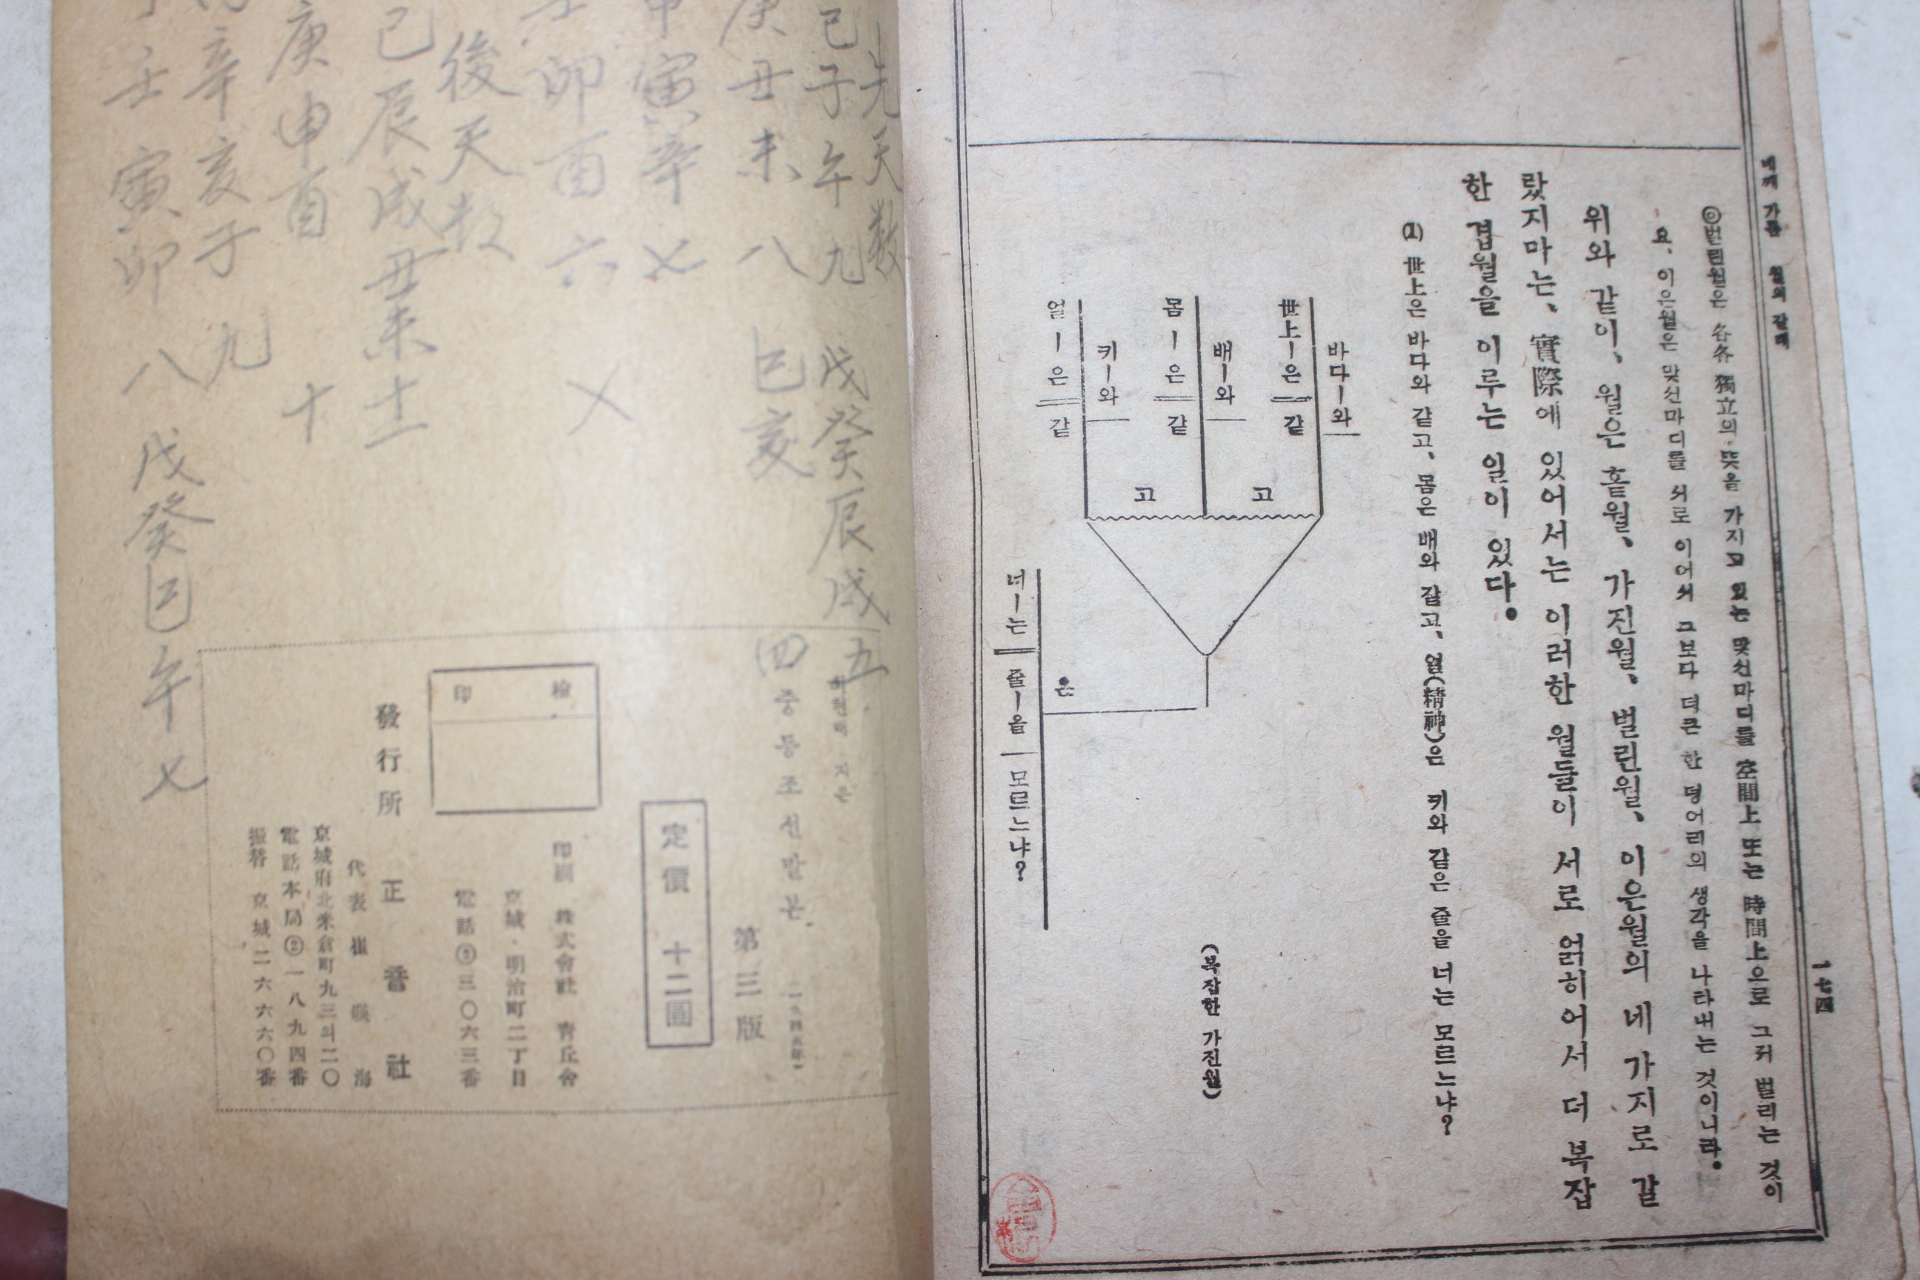 네째 가름 월의 갈래
一七四
◎벌린월은 各各 獨立의 뜻을 가지고 있는 맞선마디를 空間上 또는 時間上으로 그저 벌리는 것이
요, 이은월은 맞선마디를 서로 이어서 그보다 더큰 한 덩어리의 생각을 나타내는 것이니라.
위와 같이, 월은 홑월, 가진월, 벌린월, 이은월의 네 가지로 갈
랐지마는, 實際에 있어서는 이러한 월들이 서로 얽히어서 더 복잡
한 겹월을 이루는 일이 있다.
(1) 世上은 바다와 같고, 몸은 배와 같고, 얼(精神)은 키와 같은 줄을 너는 모르느냐?
바다ㅣ와
世上ㅣ은 같
고
배ㅣ와
몸ㅣ은 같
고
키ㅣ와
얼ㅣ은 같
은
너ㅣ는 줄ㅣ을 모르느냐?
(복잡한 가진월)
先天数
己子午九
戊癸辰戌五
庚丑未八
巳亥
四
寅辛七
卯酉六
後天数
己辰戌丑未土
庚申酉
十
辛亥子九
壬寅卯八
戊癸巳午七
지은
중등조선말본
第三版
定價 十二圓
印刷 株式會社 靑丘舍
京城·明治町二丁目
電話③三〇六三番
檢印
發行所 正音社
代表 崔暎海
京城府北米倉町九三의二〇
電話本局②一八九四番
振替 京城二六六六〇番